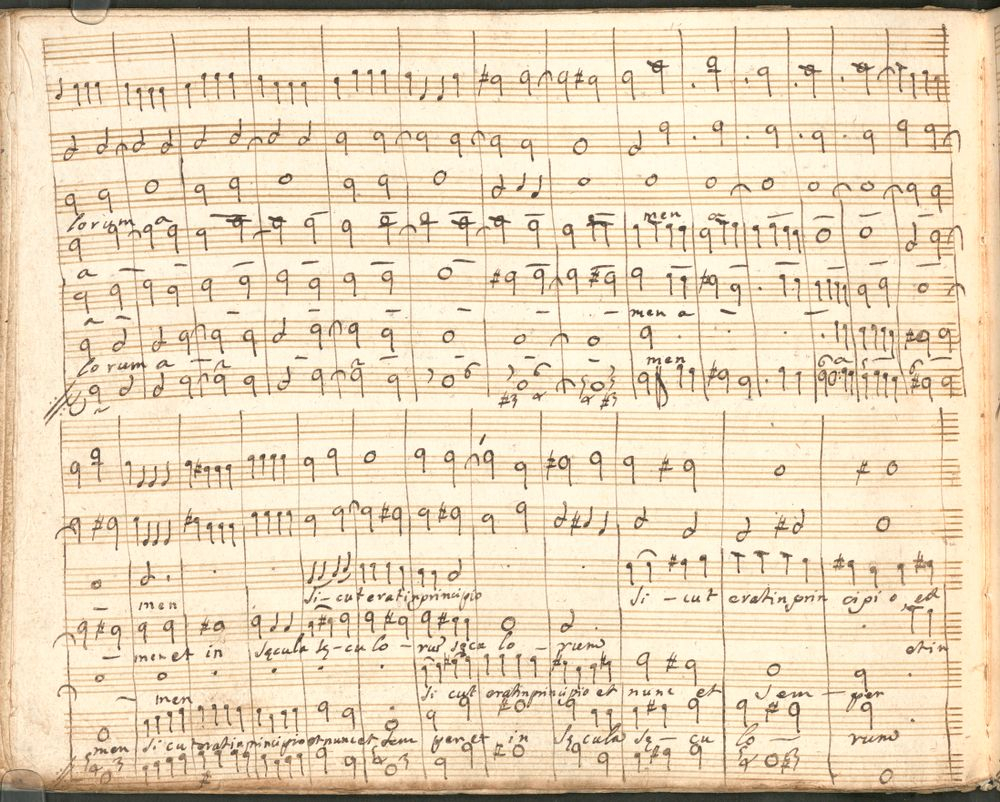 lorum a men a
a
men a
lorum a men a
men
Si-cut erat in principio Si-cut erat in prin cipi o et
men et in sęcula sę-cu lo-rum sęcu lo-rum et in
men Si cut erat in principio et nunc et Sem-per
men Sicut erat in principio et nunc et Sem per et in Sęcula Sę-cu lo rum